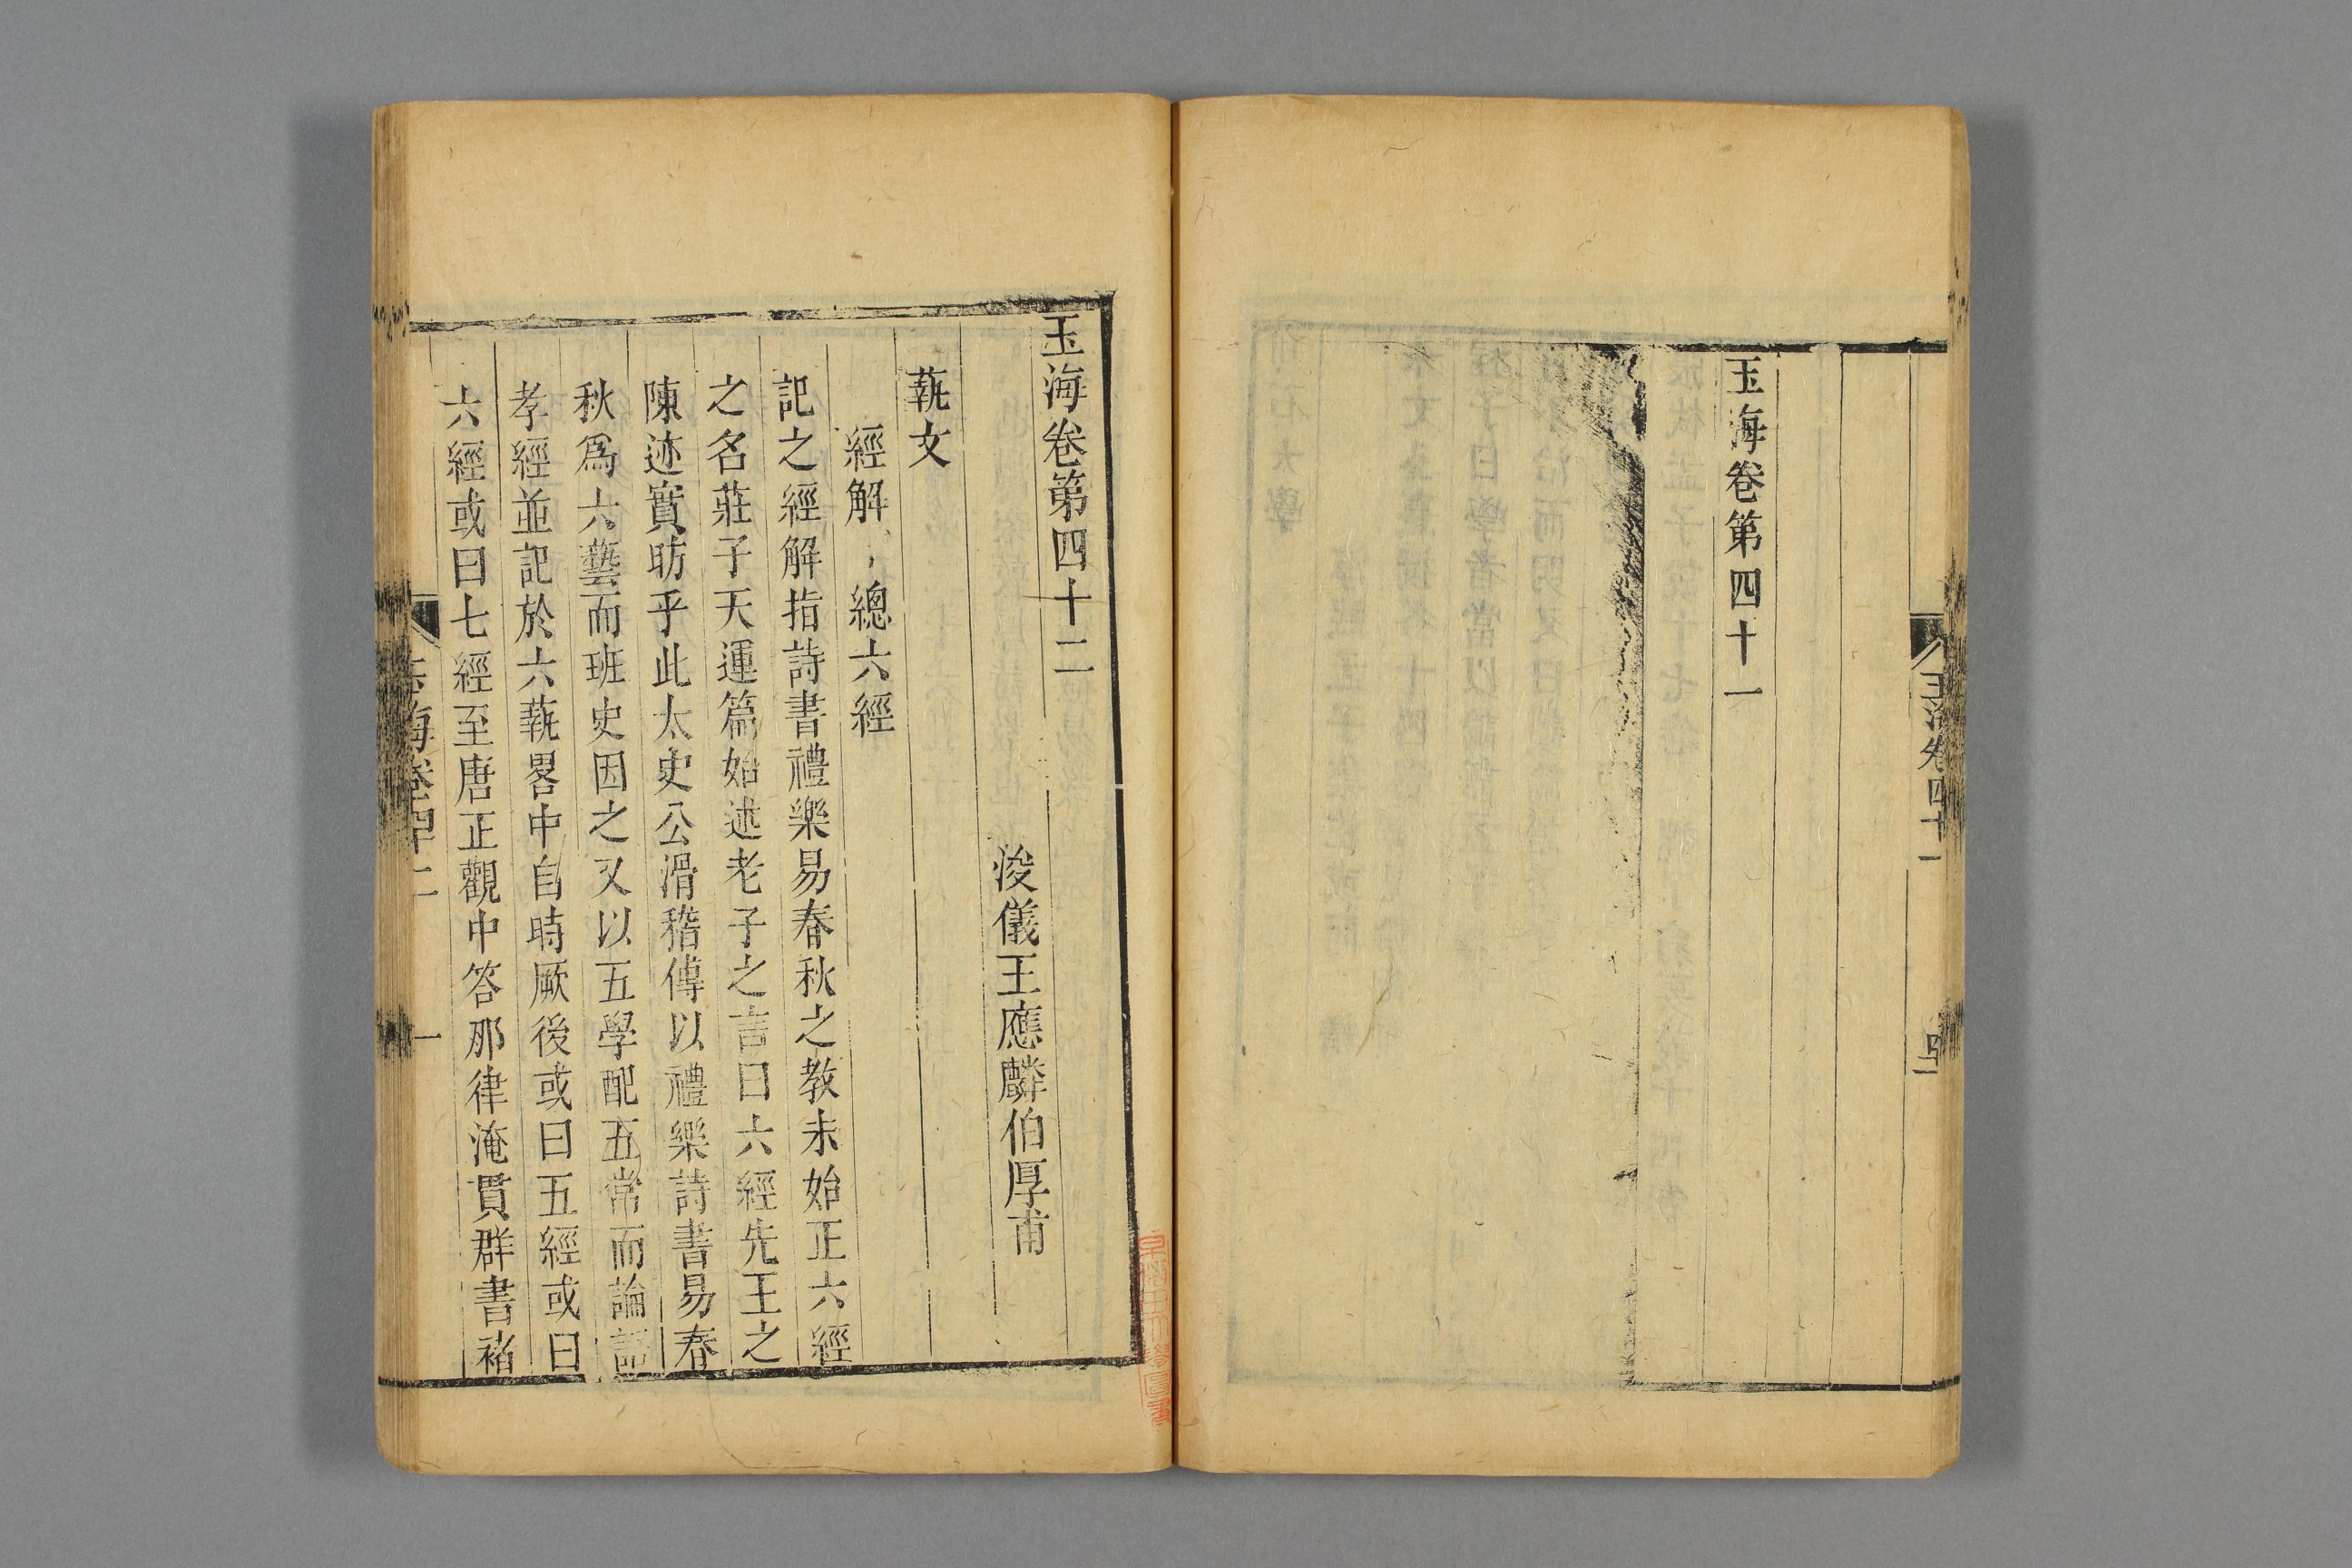 玉海卷第四十一
玉海卷四十一
玉海卷第四十二
浚儀王應麟伯厚甫
蓺文
經解 總六經
記之經解指詩書禮樂易春秋之教未始正六經
之名莊子天運篇始述老子之言曰六經先王之
陳迹實昉乎此太史公滑稽傳以禮樂詩書易春
秋爲六藝而班史因之又以五學配五常而論語
孝經並記於六蓺畧中自時厥後或曰五經或曰
六經或曰七經至唐正觀中答那律淹貫群書褚
海卷四十二
一